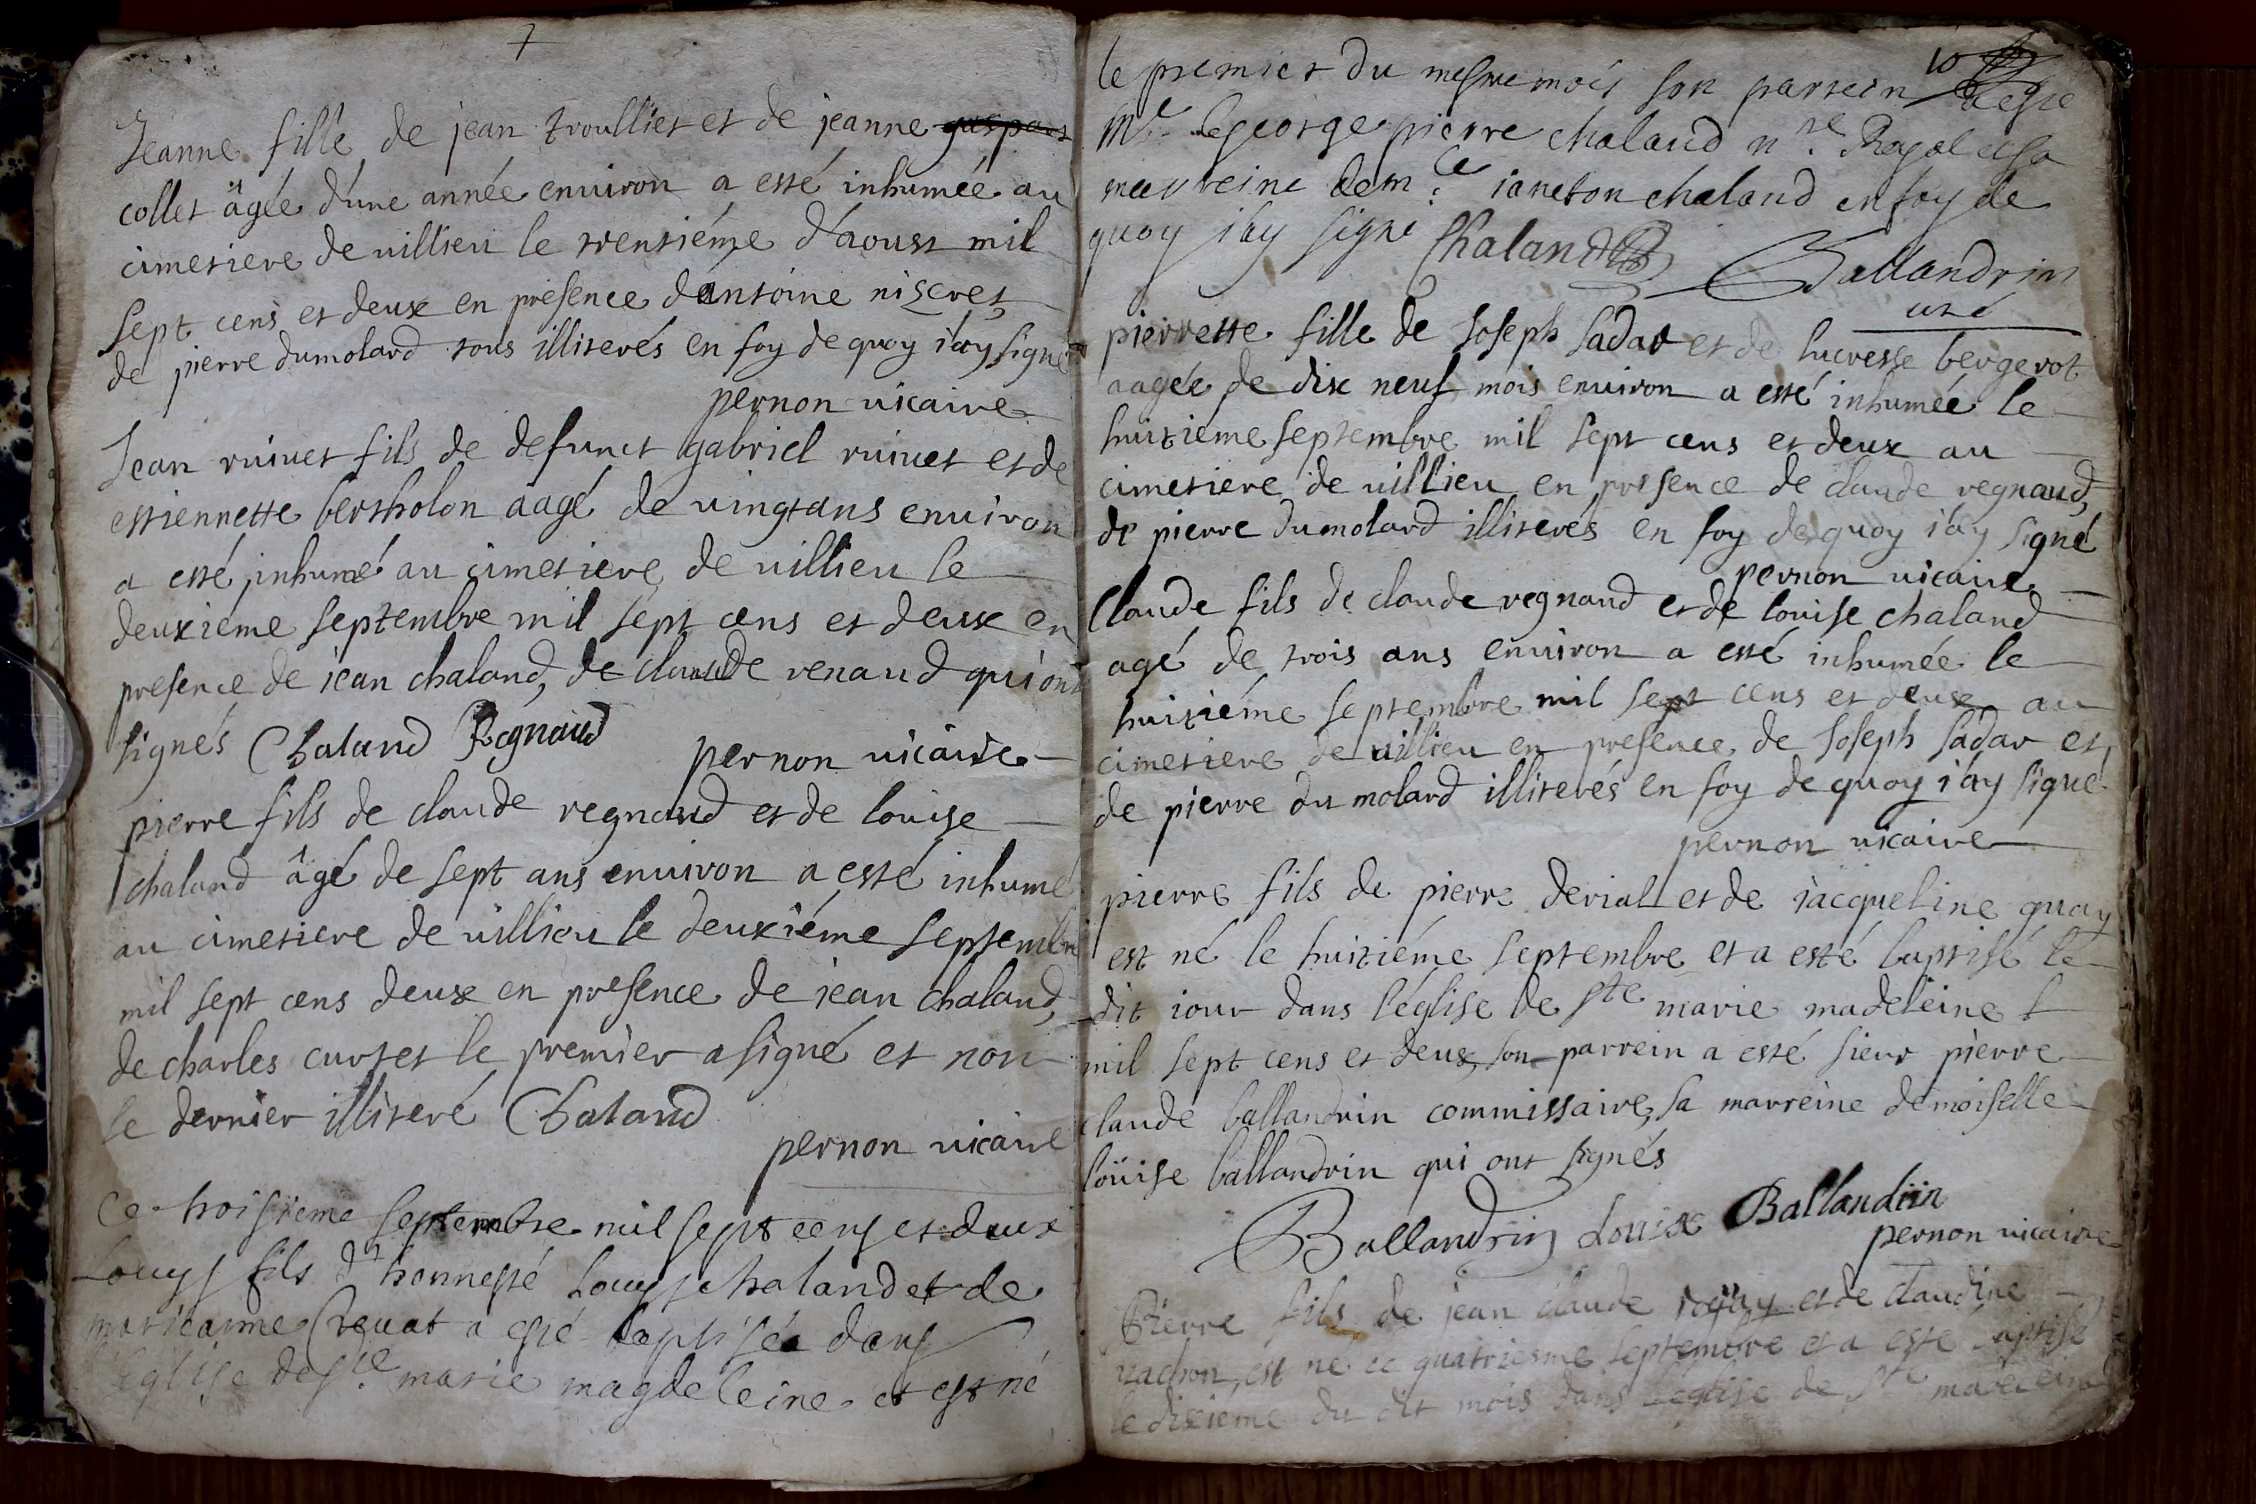 7
Jeanne fille de jean troullier et de jeanne gaspart
collet âgée d'une année environ a esté inhumée au
cimetiere de villieu le trentiéme d'aoust mil
sept cens et deux en presence d'antoine niseret
de pierre dumolard tous illiterés en foy de quoy i'ay signé
pernon vicaire
Jean ruivet fils de defunct gabriel ruivet et de
estiennette bertholon aagé de vingt ans environ
a esté inhumé au cimetiere de villieu le
deuxieme septembre mil sept cens et deux en
presence de iean chaland, de claude renaud qui ont
signés Chaland Regnaud
pernon vicaire
pierre fils de claude regnaud et de louise
chaland âgé de sept ans environ a esté inhumé
au cimetiere de villieu le deuxiéme septembre
mil sept cens deux en presence de iean chaland,
de charles curtet le premier a signé et non
le dernier illiteré Chaland
pernon vicaire
Ce troisieme septembre mil sept cens et deux
Louys fils d'honnesté Louys chaland et de
marieanne Crevat a esté baptisée dans
l'Eglise de ste marie magdeleine et est né
10
le premier du mesme mois son parrein a esté
Mre George pierre chaland nre Royal et sa
marreine demlle ianeton chaland en foy de
quoy i'ay signé Chaland Ballandrin
curé
pierrette fille de Joseph sadar et de lucresse bergerot
aagée de dix neuf mois environ a esté inhumée le
huitieme septembre mil sept cens et deux au
cimetiere de villieu en presence de claude regnaud,
de pierre dumolard illiterés en foy de quoy i'ay signé
pernon vicaire
Claude fils de claude regnaud et de louise chaland
agé de trois ans environ a esté inhumée le
huitiéme septembre mil sept cens et deux au
cimetiere de villieu en presence de Joseph sadar et
de pierre du molard illiterés en foy de quoy i'ay signé
pernon vicaire
pierre fils de pierre derial et de iacqueline guay
est né le huitiéme septembre et a esté baptisé le
dit iour dans l'église de ste marie madeleine l
mil sept cens et deux, son parrein a esté sieur pierre
claude ballandrin commissaire, sa marreine demoiselle
loüise ballandrin qui ont signés
Ballandrin Louise Ballandrin
pernon vicaire
Pierre fils de jean claude et de claudine
vachon, est né ce quatriesme septembre et a esté baptisé
le dixieme du dit mois dans l'eglise de ste madeleine